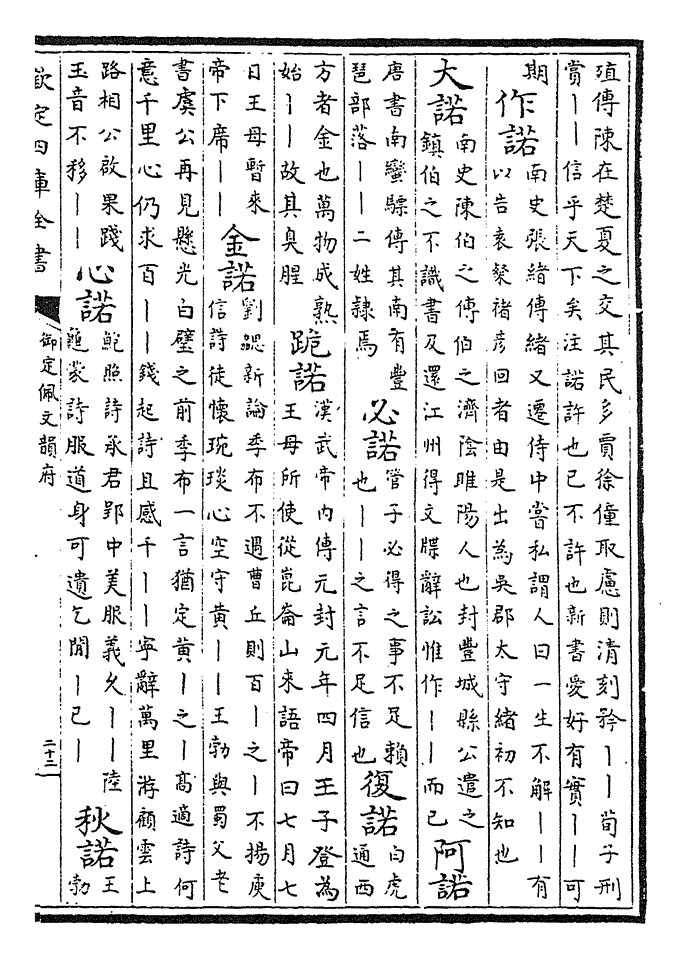 殖傳陳在楚夏之交其民多賈徐僮取慮則清刻矜丨丨荀子刑
賞丨丨信乎天下矣注諾許也已不許也新書愛好有實丨丨可
期
作諾
南史張緒傳緒又遷侍中嘗私謂人曰一生不解丨丨有
以告袁粲褚彥回者由是出為吳郡太守緒初不知也
大諾
南史陳伯之傳伯之濟陰睢陽人也封豐城縣公遣之
鎮伯之不識書及還江州得文牒辭訟惟作丨丨而已
阿諾
唐書南蠻驃傳其南有豐
琶部落丨丨二姓隸焉
必諾
管子必得之事不足賴
也丨丨之言不足信也
復諾
白虎
通西
方者金也萬物成熟
始丨丨故其臭腥
跪諾
漢武帝内傳元封元年四月王子登為
王母所使從崑崙山來語帝曰七月七
日王母暫來
帝下席丨丨
金諾
劉勰新論季布不遇曹丘則百丨之丨不揚庾
信詩徒懷琬琰心空守黄丨丨王勃與蜀父老
書虞公再見懸光白璧之前季布一言猶定黄丨之丨高適詩何
意千里心仍求百丨丨錢起詩且感千丨丨寧辭萬里游顧雲上
路相公啟果踐
玉音不移丨丨
心諾
鮑照詩承君郢中美服義久丨丨陸
龜蒙詩服道身可遺乞閒丨已丨
秋諾
王
勃
欽定四庫全書
御定佩文韻府